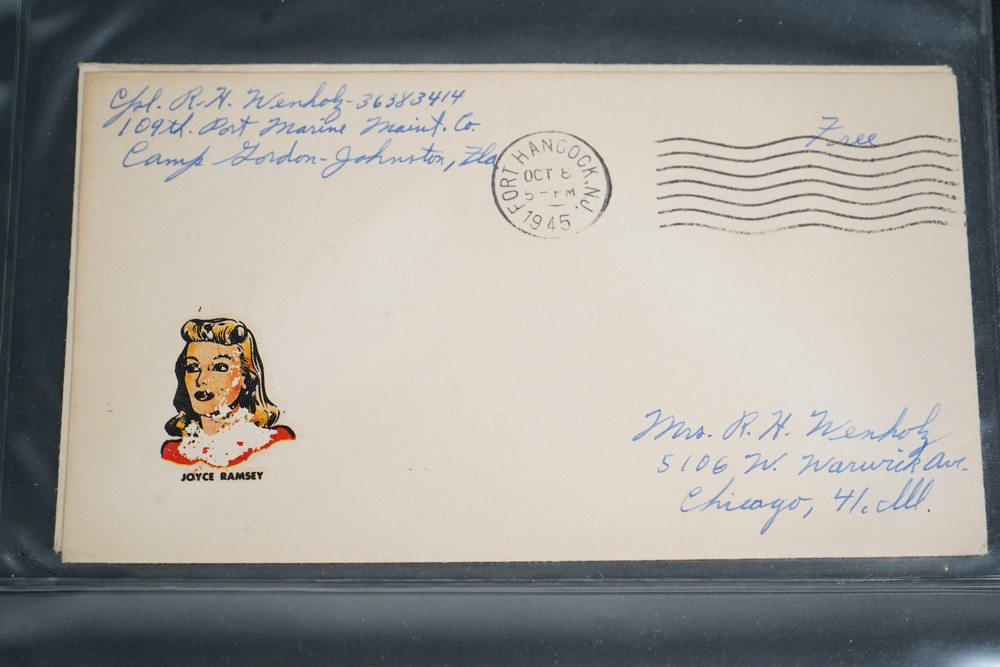 Cpl. R. H. Wenholz - 36383414
109th. Port Marine Maint. Co.
Camp Gordon-Johnston, Fla
Free
FORT HANCOCK, N.J.
OCT 8
5 - PM
1945
JOYCE RAMSEY
Mrs. R. H. Wenholz
5106 W. Warwick Ave.
Chicago, 41. Ill.